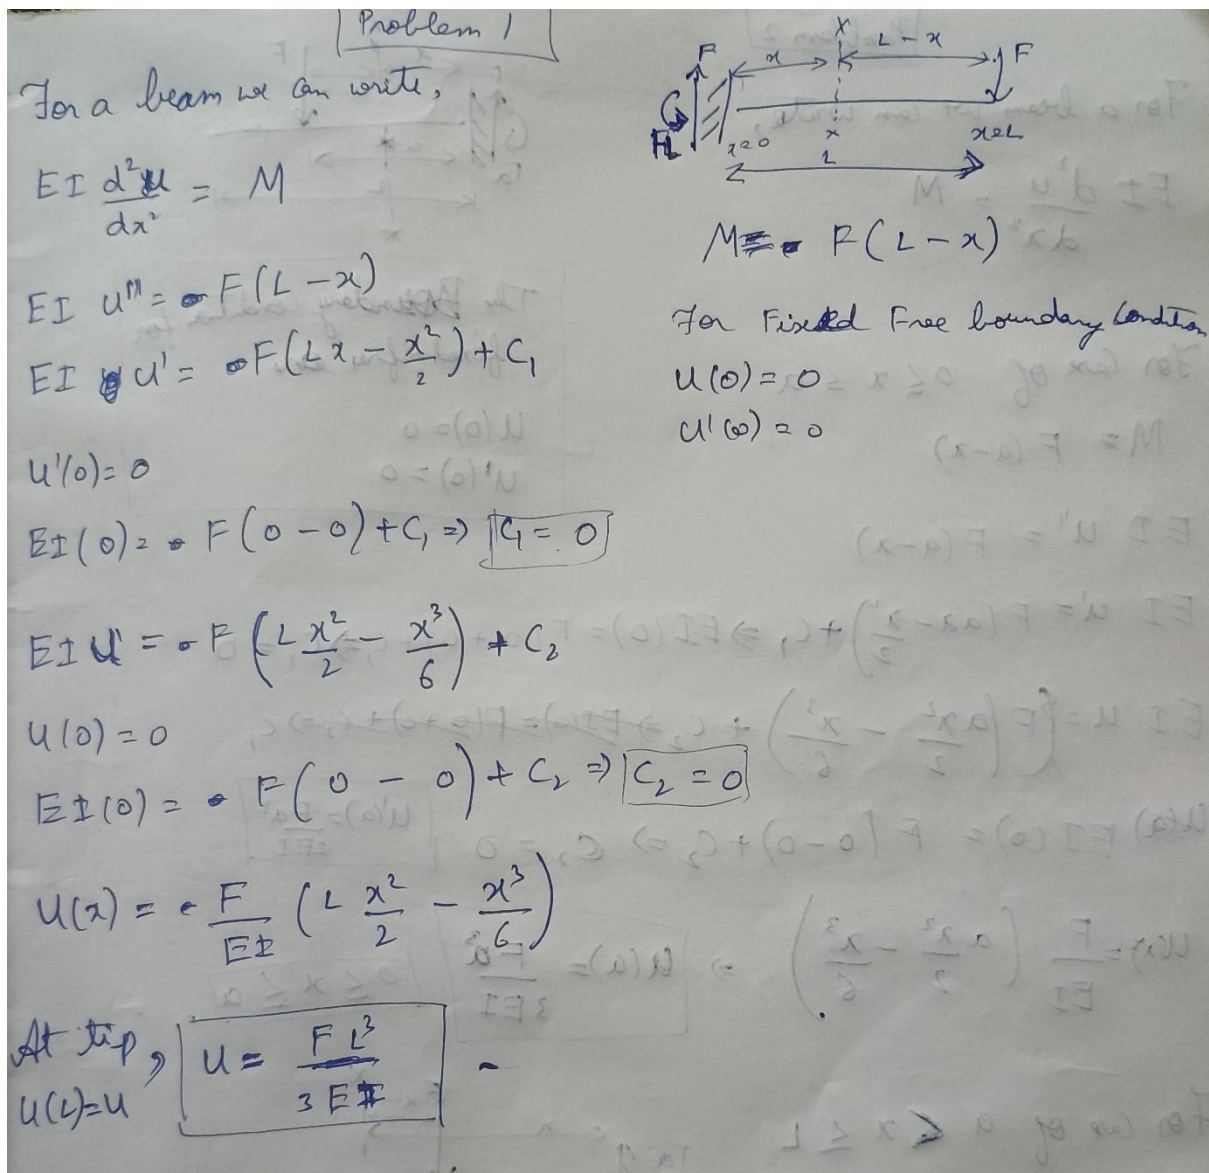 Problem 1
For a beam we can write,
EI d²u/dx² = M
EI u'' = F(L-x)
EI u' = F(Lx - x²/2) + C₁
u'(0) = 0
EI(0) = F(0-0) + C₁ ⇒ C₁ = 0
EI u = F(L x²/2 - x³/6) + C₂
u(0) = 0
EI(0) = F(0 - 0) + C₂ ⇒ C₂ = 0
u(x) = F/EI (L x²/2 - x³/6)
At tip, u = FL³/3EI
u(L)=u
X
F x L-x F
FL x=0 x x=L
L
M = F(L-x)
For Fixed Free boundary Condition
u(0) = 0
u'(0) = 0